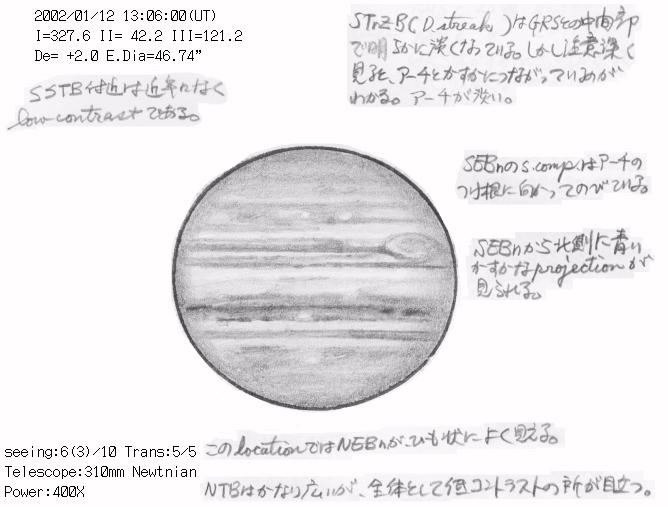 2002/01/12 13:06:00(UT)
I=327.6 II= 42.2 III=121.2
De= +2.0 E.Dia=46.74”
STrZ-B(D.streak)はGRSとの中間部
で明らかに淡くなっている。しかし注意深く
見ると、アーチとかすかにつながっているのが
わかる。アーチが淡い。
SSTB付近は近年になく
low contrastである。
SEBnのs.comp.はアーチの
つけ根に向かってのびている。
SEBnから北側に青い
かすかなprojectionが
見られる。
seeing:6(3)/10 Trans:5/5
Telescope:310mm Newtnian
Power:400X
このlocationではNEBnが、ひも状によく見える。
NTBはかなり広いが、全体として低コントラストの所が目立つ。